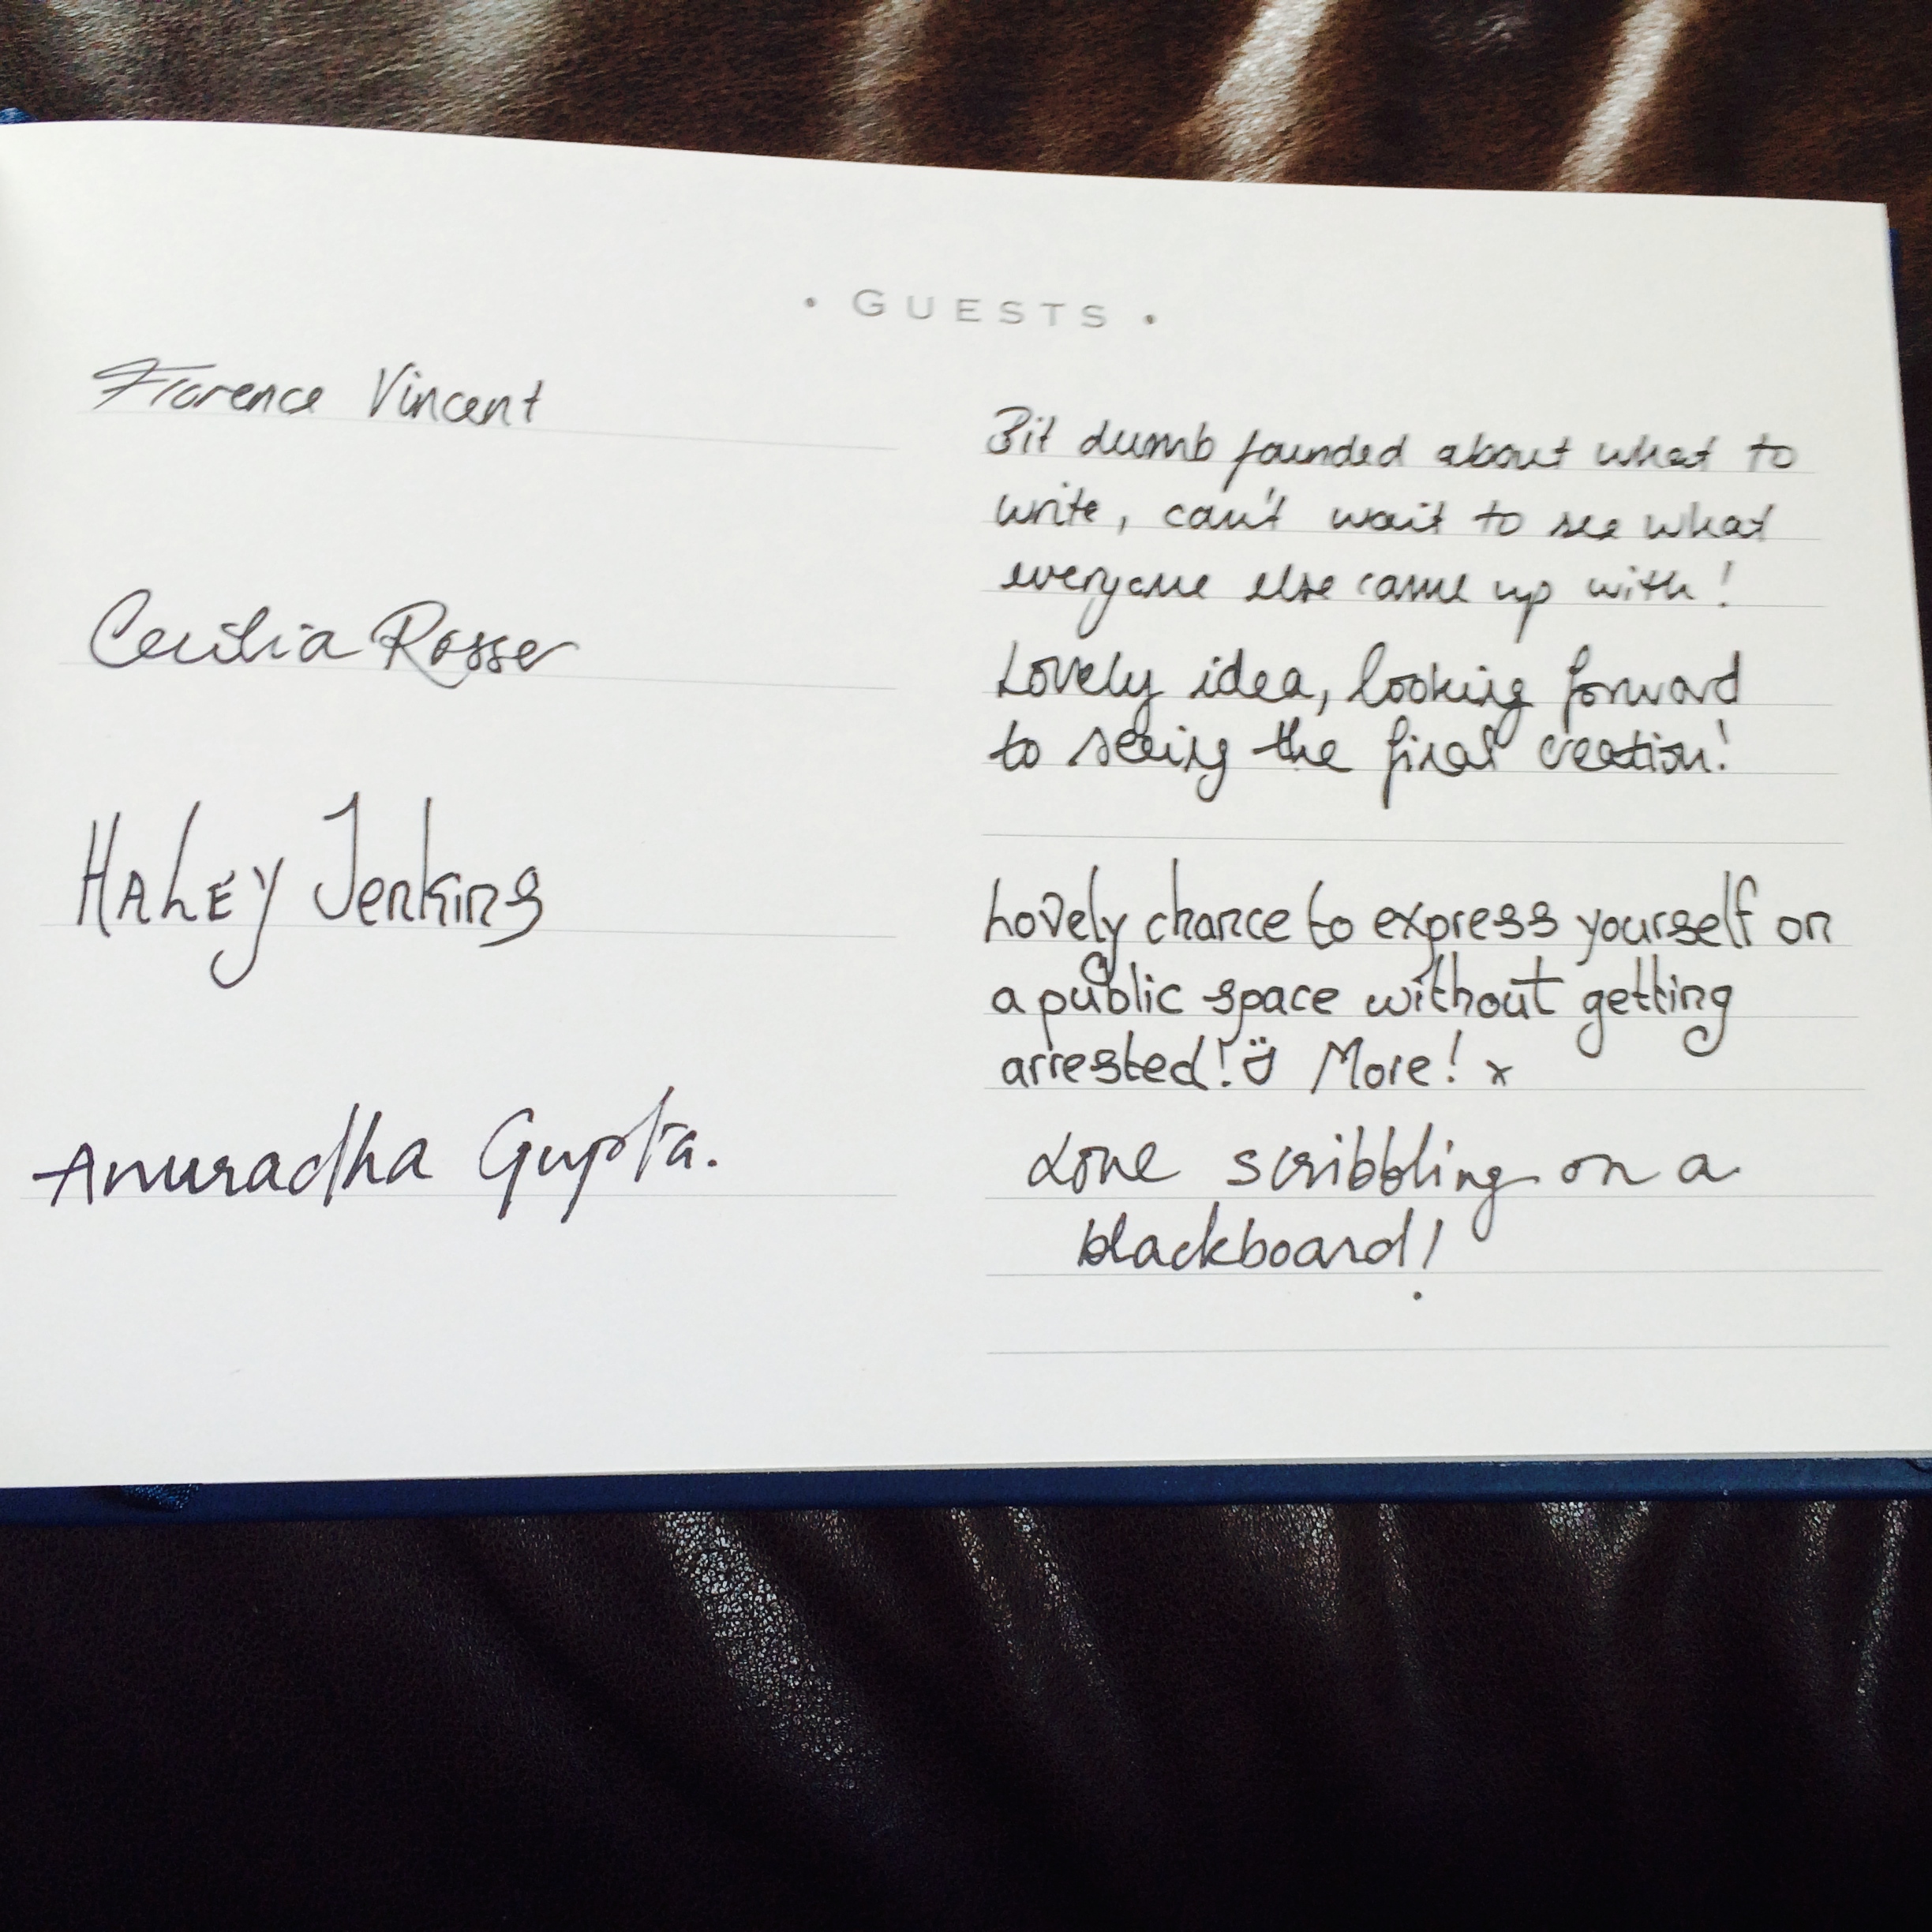 • GUESTS •
Florence Vincent
Bit dumb founded about what to
write, can't wait to see what
everyone else came up with!
Cecilia Rosser
Lovely idea, looking forward
to seeing the final creation!
HALEY Jenkins
Lovely chance to express yourself on
a public space without getting
arrested! More! x
Anuradha Gupta.
Love scribbling on a
blackboard!